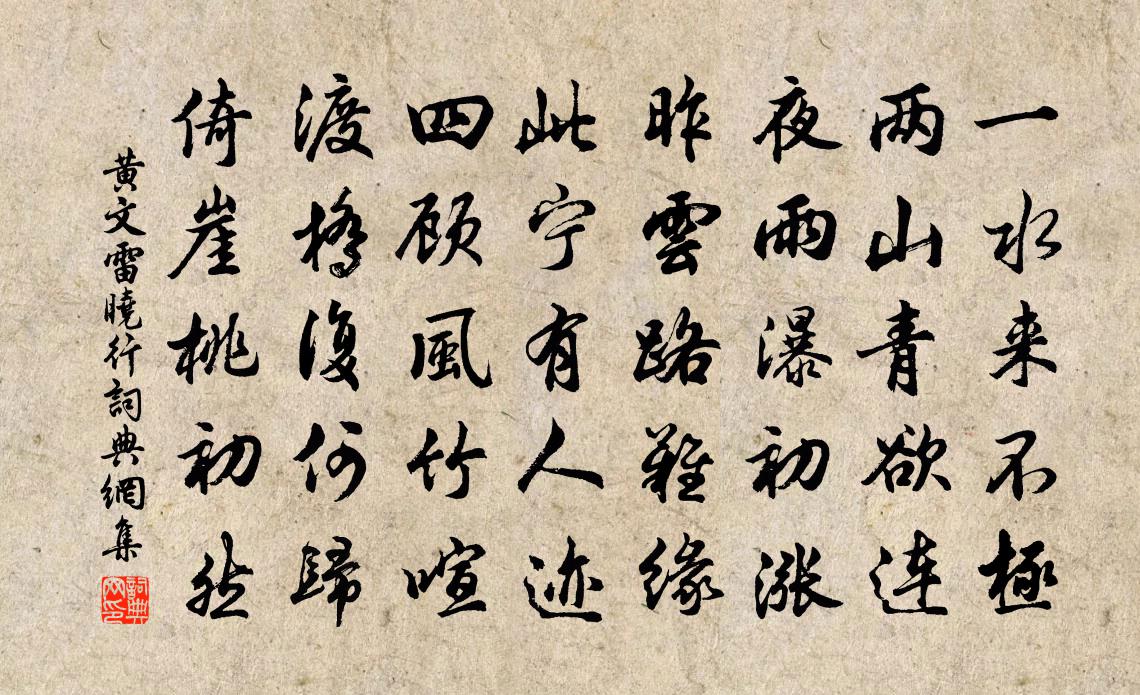 一水来不極
两山青欲連
夜雨瀑初漲
昨雲路難緣
此宁有人迹
四顾風竹喧
渡橋復何歸
倚崖桃初然
黄文雷曉行詞典網集
詞典網印